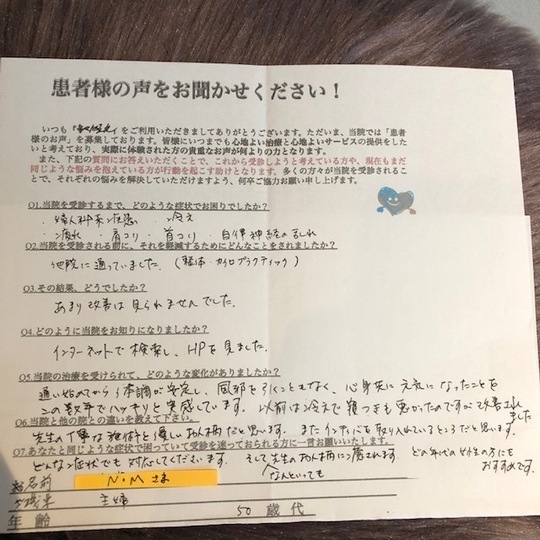 患者様の声をお聞かせください！
いつも『 』をご利用いただきましてありがとうございます。ただいま、当院では「患者
様のお声」を募集しております。皆様にいつまでも心地よい治療と心地よいサービスの提供をした
いと考えており、実際に体験された方の貴重なお声が何よりの力となります。
また、下記の質問にお答えいただくことで、これから受診しようと考えている方や、現在もまだ
同じような悩みを抱えている方が行動を起こす助けとなります。多くの方々が当院を受診されるこ
とで、それぞれの悩みを解決していただけますよう、何卒ご協力お願い申し上げます。
Q1.当院を受診するまで、どのような症状でお困りでしたか？
・婦人科系疾患 ・冷え
・疲れ ・肩コリ ・首コリ ・自律神経の乱れ
Q2.当院を受診される前に、それを軽減するためにどんなことをされましたか？
他院に通っていました。(整体・カイロプラクティック)
Q3.その結果、どうでしたか？
あまり改善は見られませんでした。
Q4.どのように当院をお知りになりましたか？
インターネットで検索し、HPを見ました。
Q5.当院の治療を受けられて、どのような変化がありましたか？
通い始めてから体調が安定し、風邪を引くこともなく、心身共に元気になったことを
この数年でハッキリと実感しています。以前は冷えで寝つきも悪かったのですが改善されました
Q6.当院と他の院との違いを教えて下さい。
先生の丁寧な施術と優しいお人柄だと思います。またインディバを取り入れているところだと思います。
Q7.あなたと同じような症状で困っていて受診を迷っておられる方に一言お願いいたします。
どんな症状でも対応してくださいます。そして先生のお人柄に癒されます。どの年代の女性の方にも
なんといっても おすすめです。
お名前 N・M さま
ご職業 主婦
年齢 50歳代